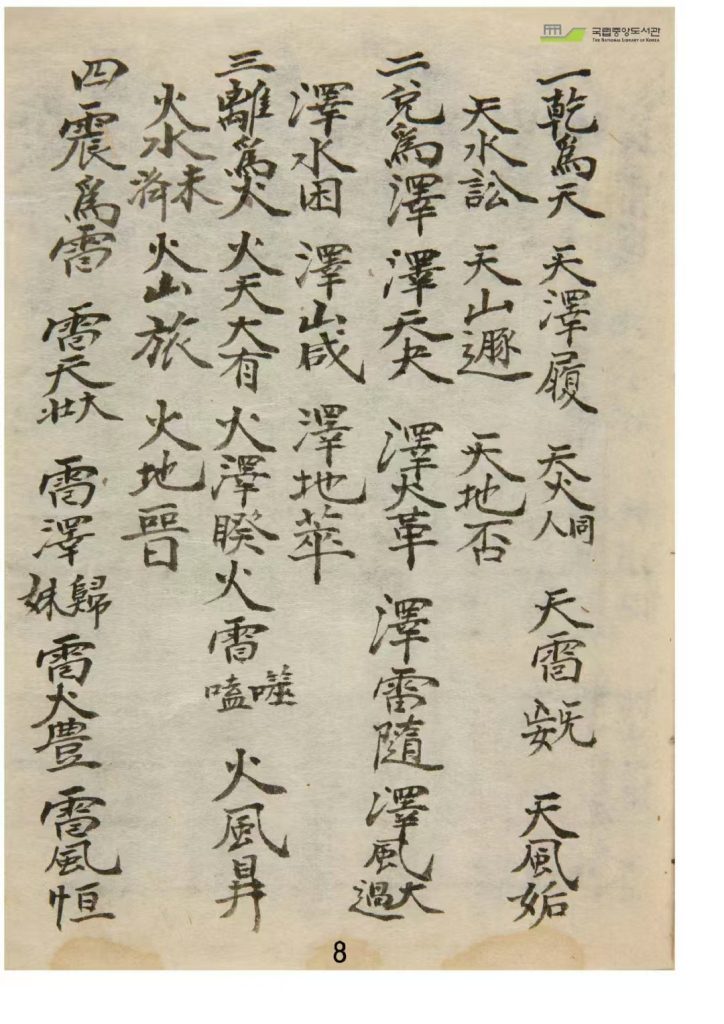 국립중앙도서관
THE NATIONAL LIBRARY OF KOREA
一乾爲天 天澤履 天火同人 天雷无妄 天風姤
天水訟 天山遯 天地否
二兌爲澤 澤天夬 澤火革 澤雷隨 澤風大過
澤水困 澤山咸 澤地萃
三離爲火 火天大有 火澤睽 火雷噬嗑 火風鼎
火水未濟 火山旅 火地晉
四震爲雷 雷天大壯 雷澤歸妹 雷火豊 雷風恒
8